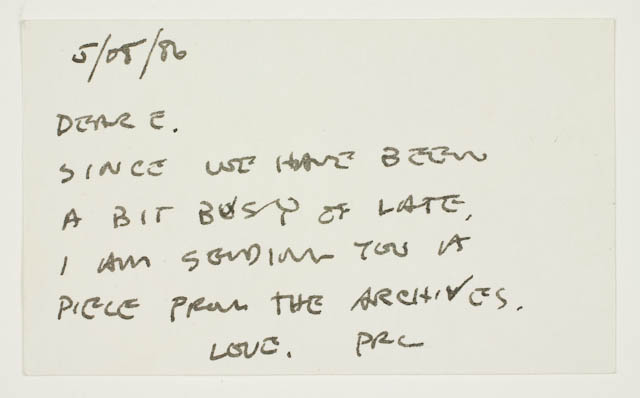 5/05/86
DEAR E.
SINCE WE HAVE BEEN
A BIT BUSY OF LATE,
I AM SENDING YOU A
PIECE FROM THE ARCHIVES.
LOVE. PRC